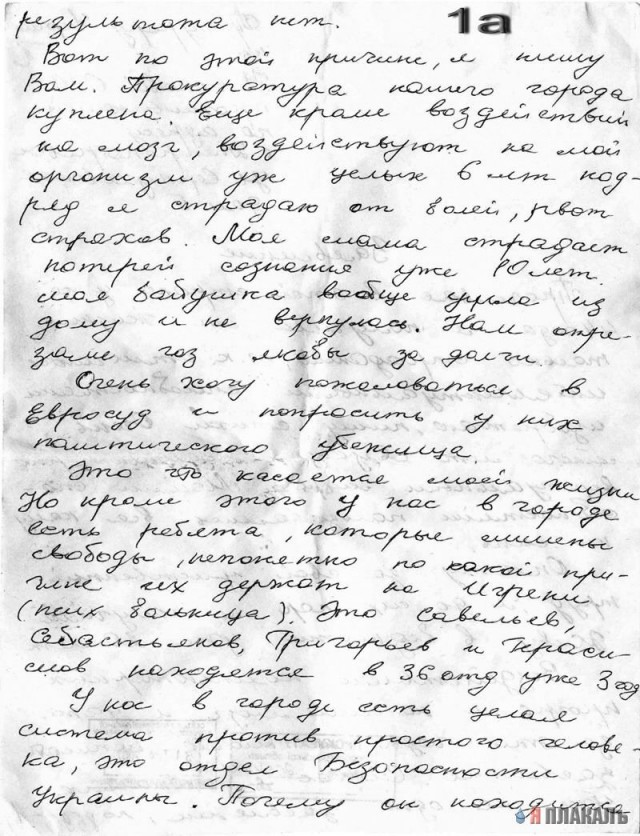 результата нет.
1а
Вот по этой причине, я пишу
Вам. Прокуратура нашего города
куплена. Еще кроме воздействий
на мозг, воздействуют на мой
организм уже целых 6 лет под-
ряд я страдаю от болей, рвот
страхов. Моя мама страдает
потерей сознания уже 10 лет.
моя бабушка вообще ушла из
дому и не вернулась. Нам отре-
зали газ якобы за долги.
Очень хочу пожаловаться в
Евросуд и попросить у них
политического убежища.
Это что касается моей жизни
Но кроме этого у нас в городе
есть ребята, которые лишены
свободы, непонятно по какой при-
чине их держат на Игрени
(псих больница). Это Савельев,
Себастьянов, Григорьев и Краси
мов находятся в 36 отд уже 3 год
У нас в городе есть целая
система против простого челове-
ка, это отдел Безопасности
Украины. Почему он находится
Я ПЛАКАЛЪ